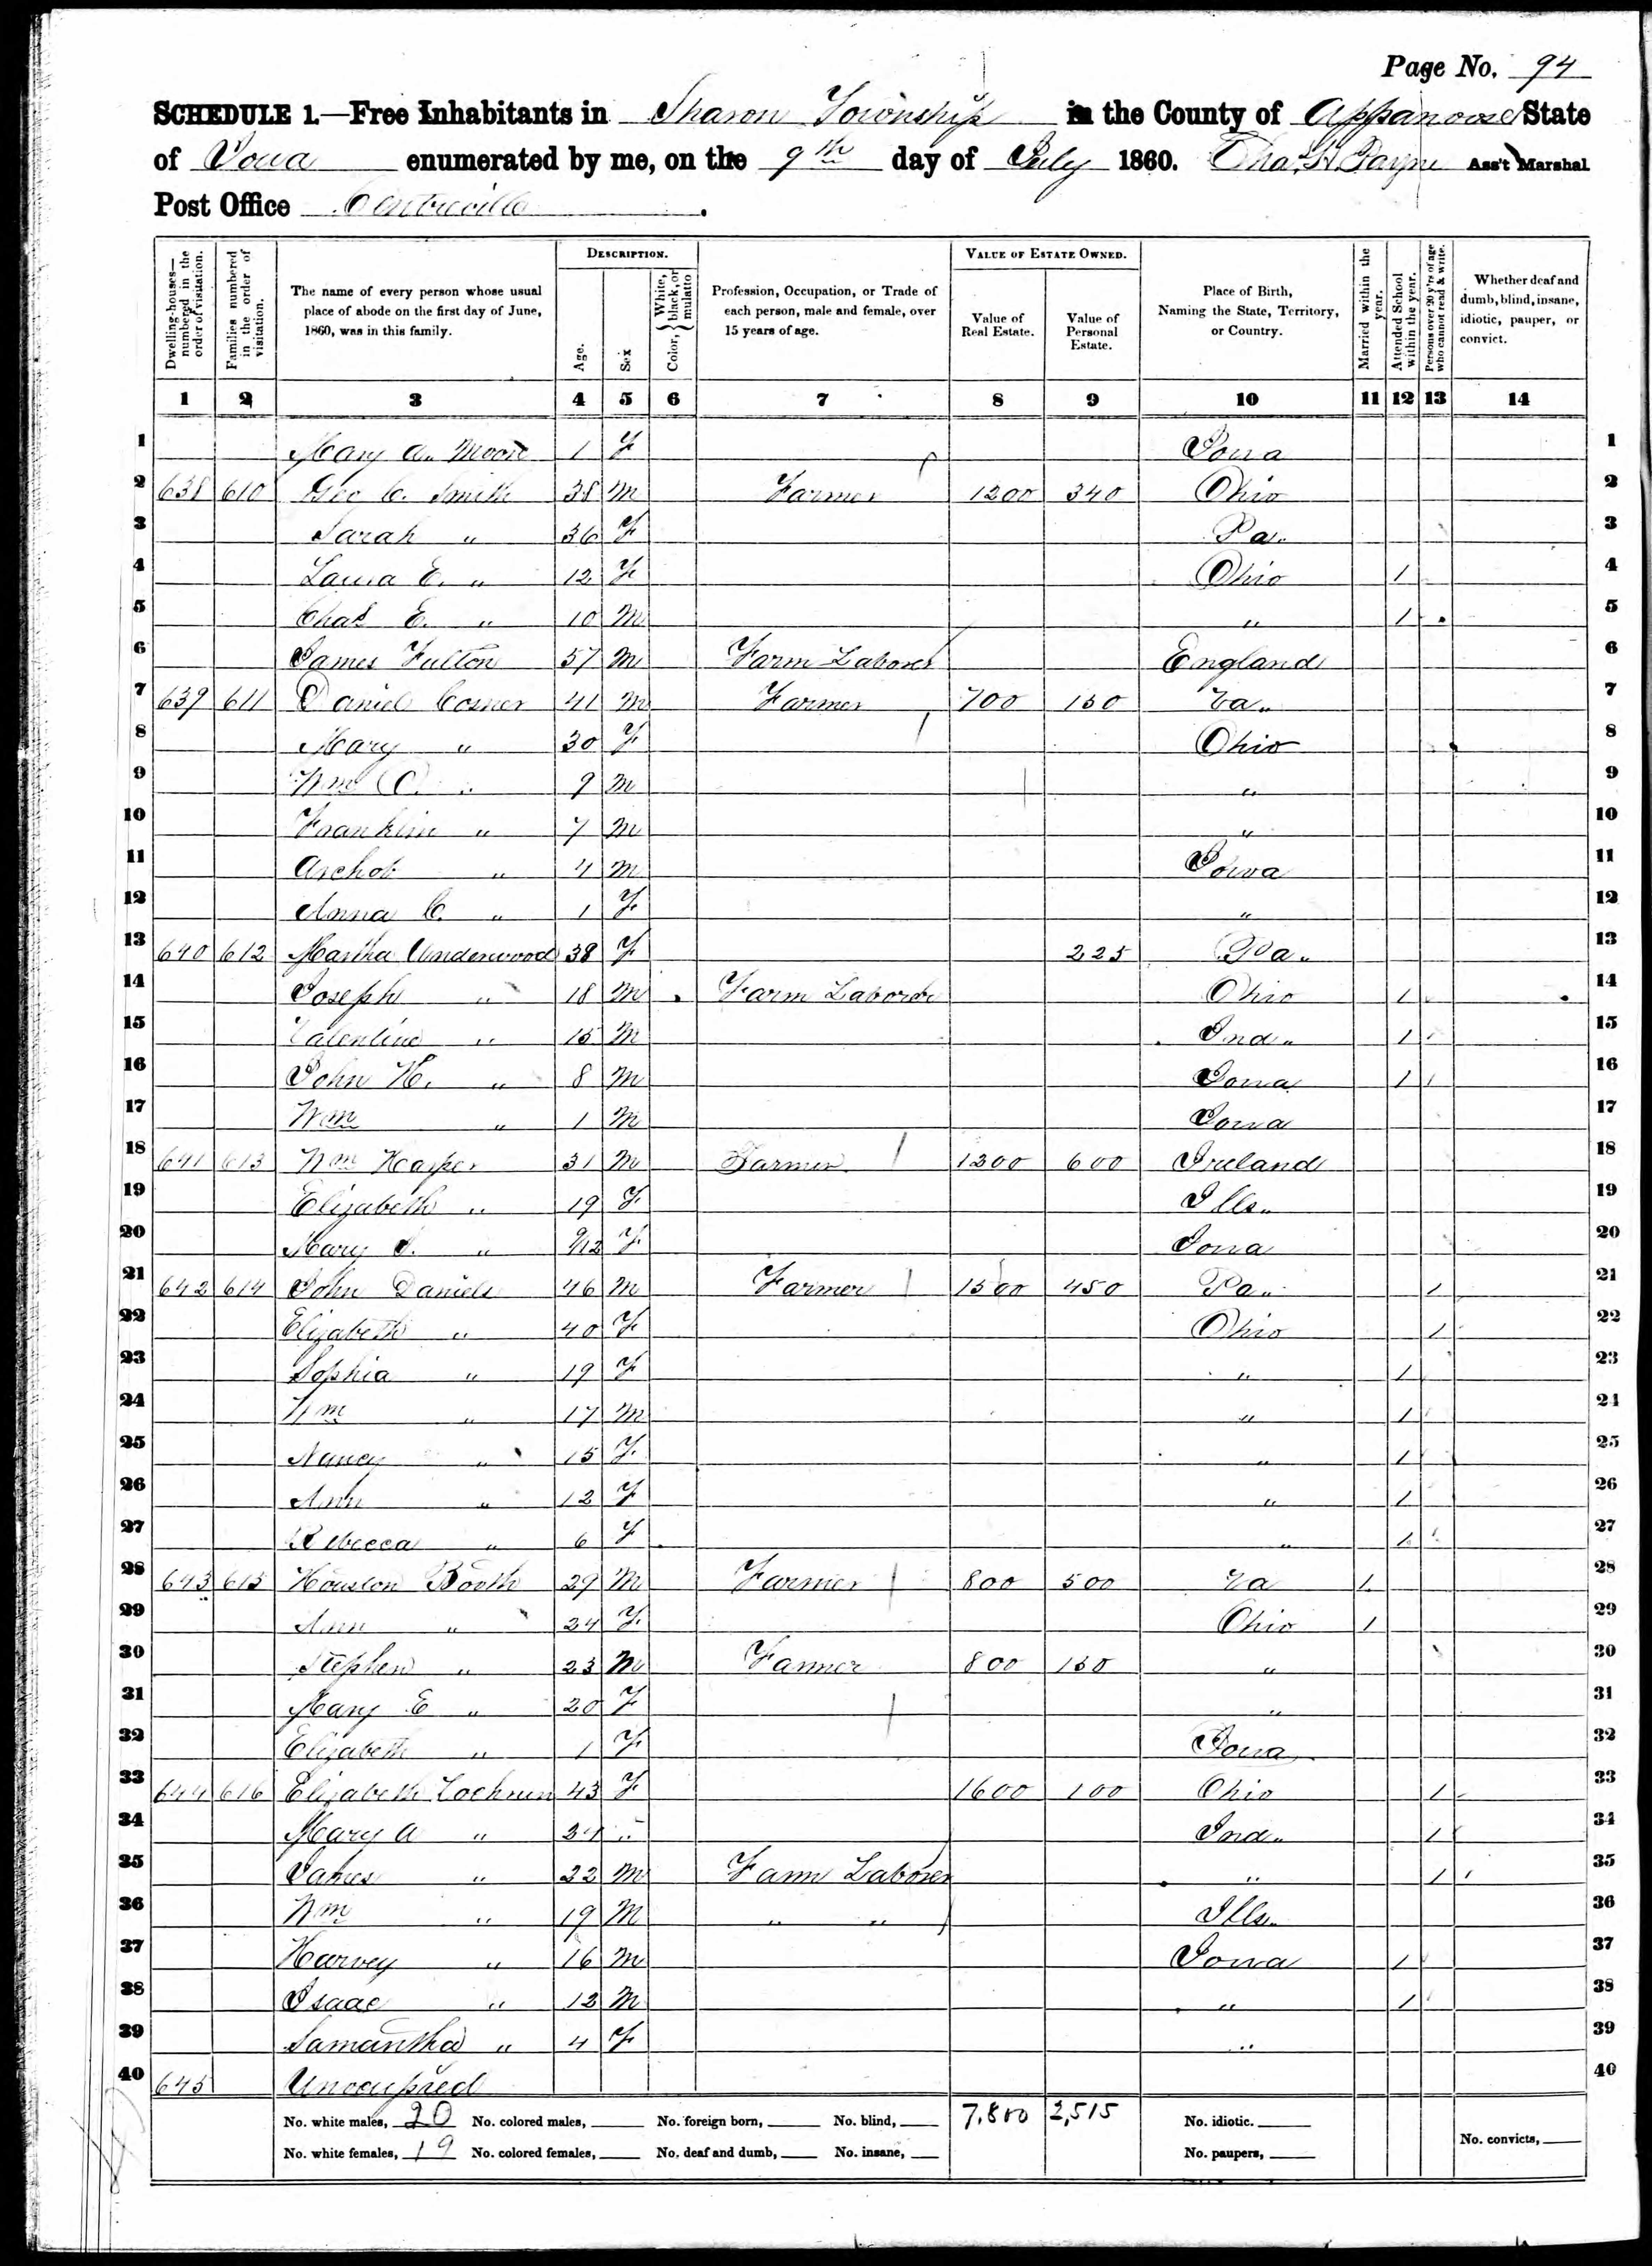 Page No. 94
SCHEDULE 1.—Free Inhabitants in Sharon Township in the County of Appanoose State
of Iowa enumerated by me, on the 9th day of July 1860. Chas. H. Payne Ass't Marshal
Post Office Centreville.
Dwelling-houses—numbered in the order of visitation. Families numbered in the order of visitation. The name of every person whose usual place of abode on the first day of June, 1860, was in this family. DESCRIPTION. Age. Sex Color, White, black, or mulatto Profession, Occupation, or Trade of each person, male and female, over 15 years of age. VALUE OF ESTATE OWNED. Value of Real Estate. Value of Personal Estate. Place of Birth, Naming the State, Territory, or Country. Married within the year. Attended School within the year. Persons over 20 y'rs of age who cannot read & write. Whether deaf and dumb, blind, insane, idiotic, pauper, or convict.
1 2 3 4 5 6 7 8 9 10 11 12 13 14
1 Mary A. Moore 1 F Iowa 1
2 638 610 Geo C. Smith 38 M Farmer 1200 340 Ohio 2
3 Sarah " 36 F Pa. 3
4 Laura E. " 12 F Ohio 1 4
5 Chas E. " 10 M " 1 5
6 James Fulton 57 M Farm Laborer England 6
7 639 611 Daniel Cosner 41 M Farmer 700 150 Va. 7
8 Mary " 30 F Ohio 8
9 Wm O. " 9 M " 9
10 Franklin " 7 M " 10
11 " 4 M Iowa 11
12 Anna C. " 1 F " 12
13 640 612 Martha Underwood 38 F 225 Pa. 13
14 Joseph " 18 M Farm Laborer Ohio 1 14
15 Valentine " 15 M Ind. 1 15
16 John H. " 8 M Iowa 1 16
17 Wm " 1 M Iowa 17
18 641 613 Wm Harper 31 M Farmer 1200 600 Ireland 18
19 Elizabeth " 19 F Ills. 19
20 Mary " 9/12 F Iowa 20
21 642 614 John Daniels 46 M Farmer 1500 450 Pa. 1 21
22 Elizabeth " 40 F Ohio 1 22
23 Sophia " 19 F " 1 23
24 Wm " 17 M " 1 24
25 Nancy " 15 F " 1 25
26 Ann " 12 F " 1 26
27 Rebecca " 6 F " 1 27
28 643 615 Houston Booth 29 M Farmer 800 500 Va 1 28
29 Ann " 24 F Ohio 1 29
30 Stephen " 23 M Farmer 800 150 " 30
31 Mary E " 20 F " 31
32 Elizabeth " 1 F Iowa 32
33 644 616 Elizabeth Cochrun 43 F 1600 100 Ohio 1 33
34 Mary A " 24 " Ind. 1 34
35 James " 22 M Farm Laborer " 1 35
36 Wm " 19 M " " Ills. 36
37 Harvey " 16 M Iowa 1 37
38 Isaac " 12 M " 1 38
39 Samantha " 4 F " 39
40 645 Unoccupied 40
No. white males, 20 No. colored males, No. foreign born, No. blind, 7,800 2,515 No. idiotic.
No. white females, 19 No. colored females, No. deaf and dumb, No. insane, No. paupers, No. convicts,